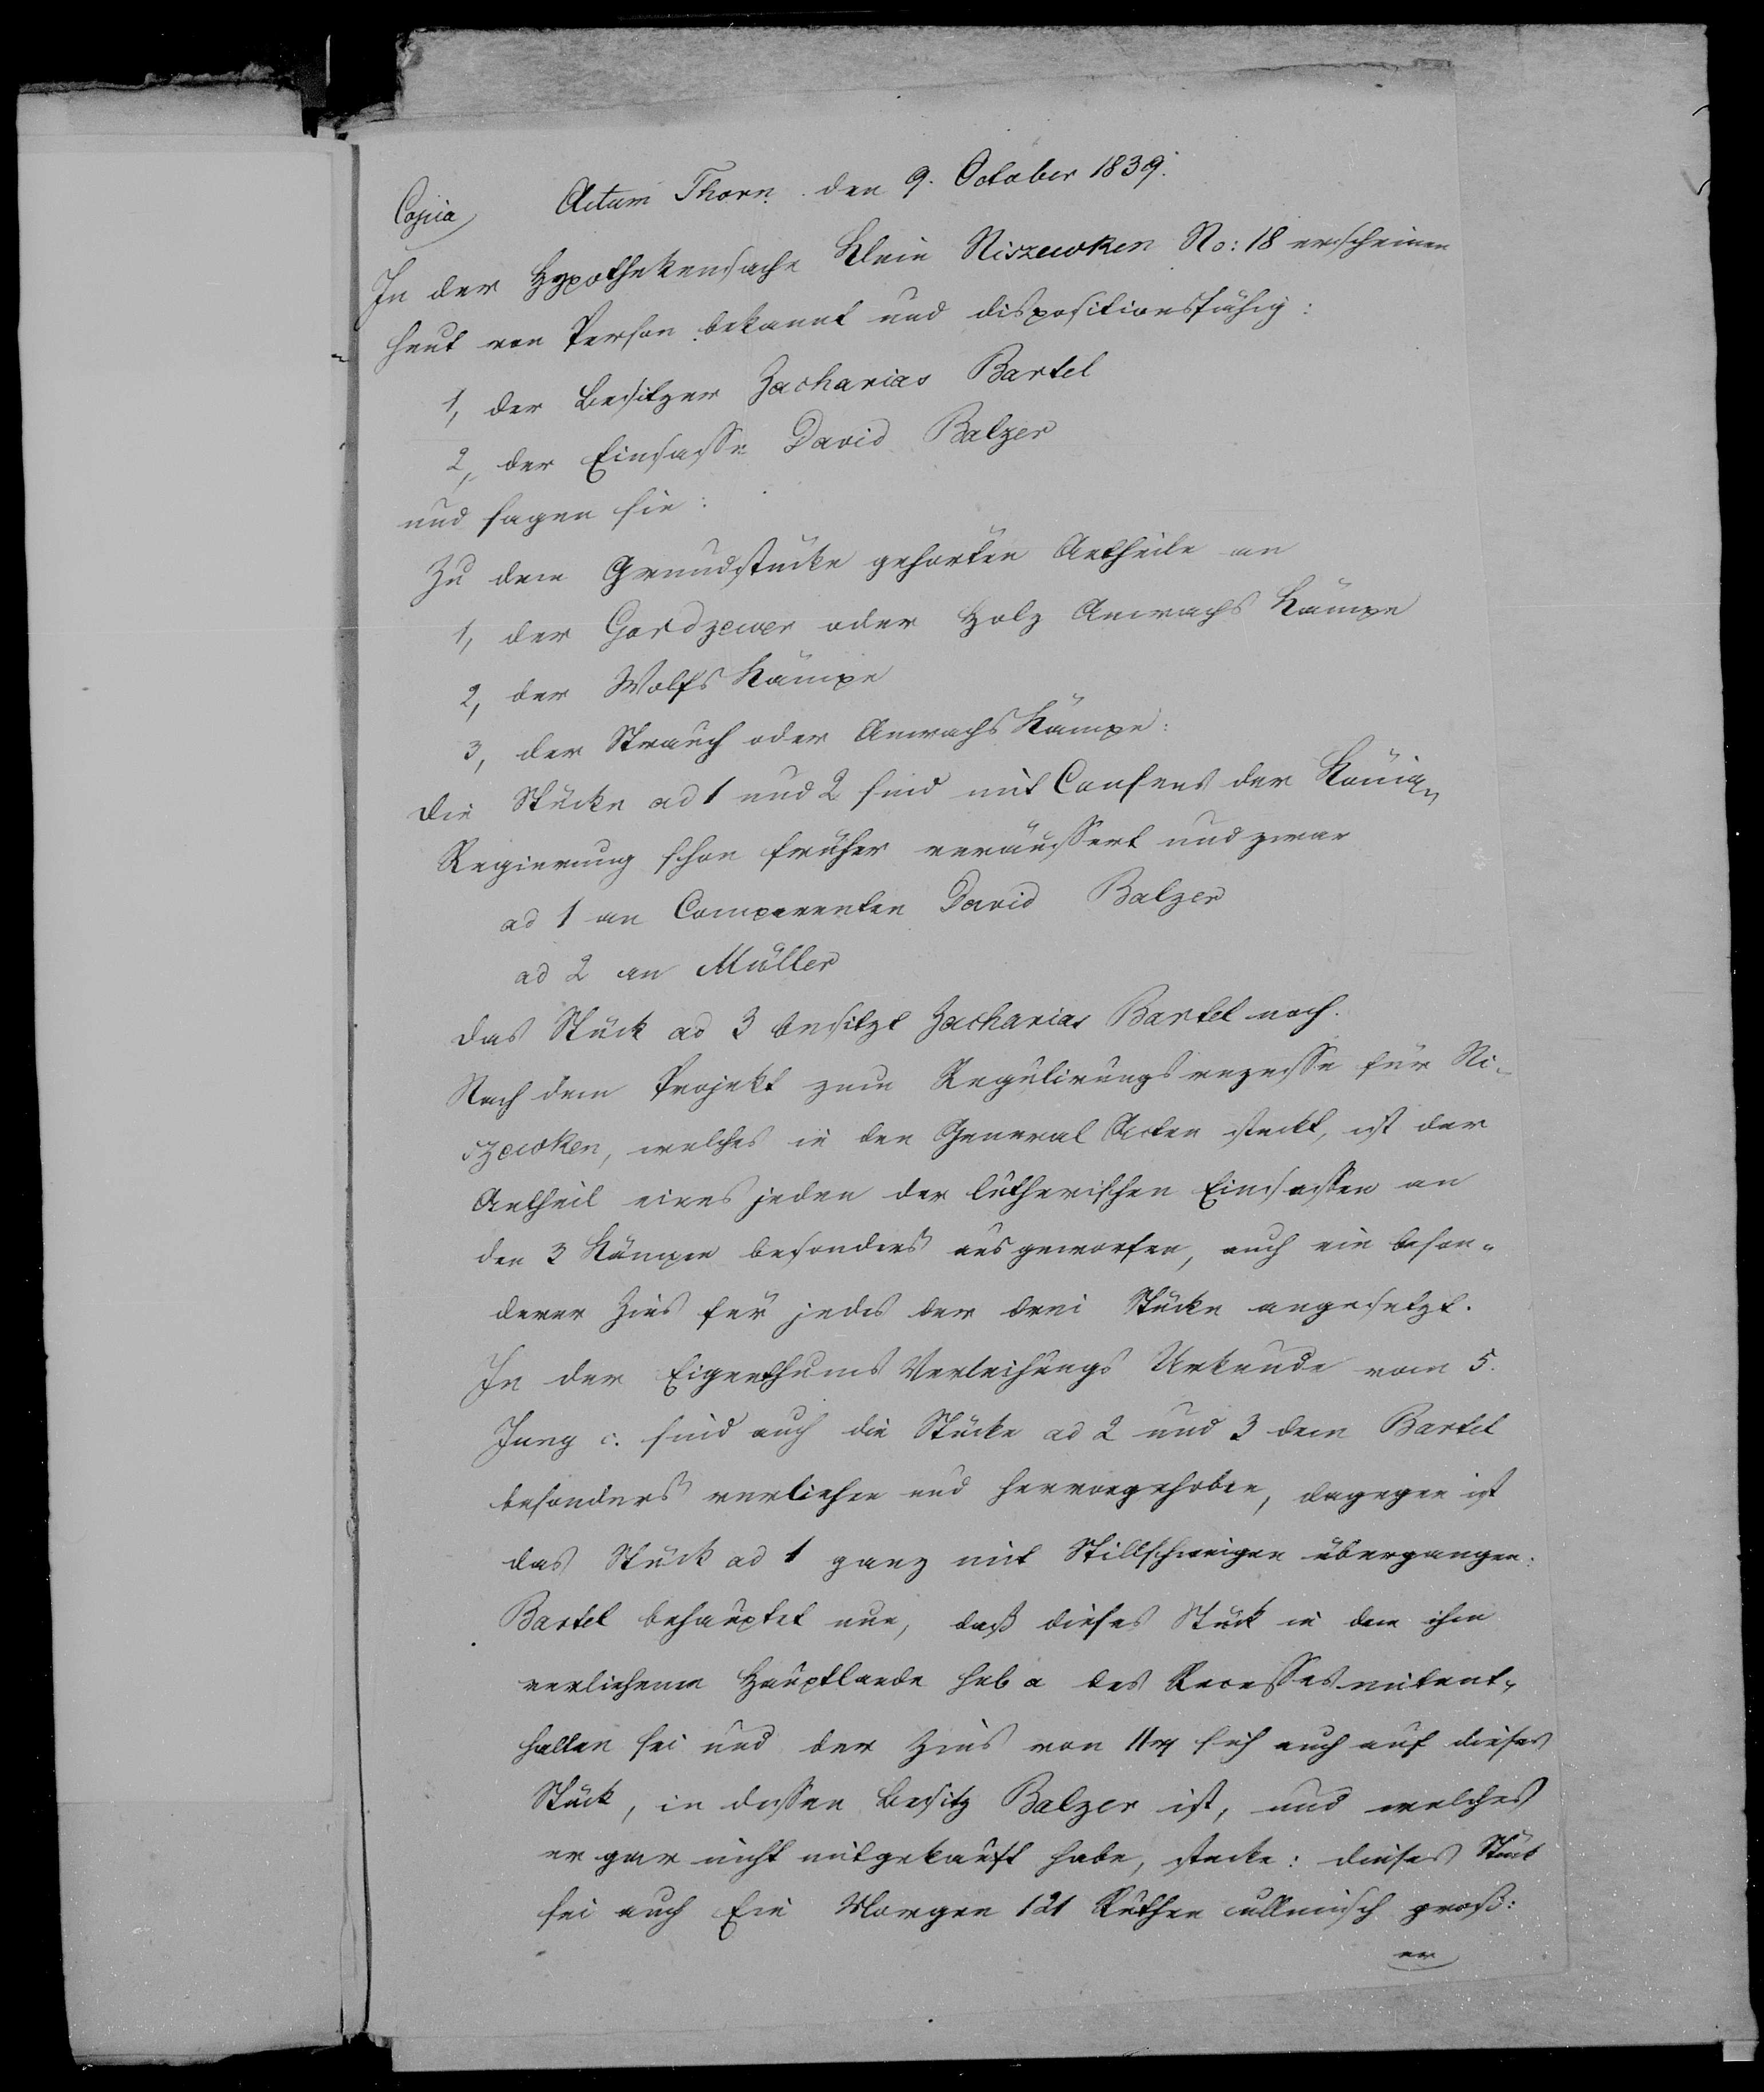 Copia Actum Thorn den 9. October 1839.
In der Hypothekensache Klein Niszewken No: 18 erscheinen
heut von Person bekannt und dispositionsfähig:
1, der Besitzer Zacharias Bartel
2, der Einsasse David Balzer
und sagen sie:
Zu dem Grundstücke gehörten Antheile an
1, der Gordzewer oder Holz Anwachs Kämpe
2, der Wolfs Kämpe
3, der Strauch oder Anwachs Kämpe:
Die Stücke ad 1 und 2 sind mit Consens der Königl.
Regierung schon früher veräussert und zwar
ad 1 an Comparenten David Balzer
ad 2 an Müller
das Stück ad 3 besitzt Zacharias Bartel noch.
Nach dem Projekt zum Regulirungsrezesse für Ni-
szewken, welches in den General Acten steckt, ist der
Antheil eines jeden der lutherischen Einsassen an
den 3 Kämpen besonders ausgeworfen, auch ein beson-
derer Zins für jedes der drei Stücke angesetzt.
In der Eigenthums Verleihungs Urkunde vom 5.
Juny c. sind auch die Stücke ad 2 und 3 dem Bartel
besonders verliehen und hervorgehoben, dagegen ist
das Stück ad 1 ganz mit Stillschweigen übergangen:
Bartel behauptet nun, daß dieses Stück in dem ihm
verliehenen Hauptlande sub a des Recesses mitent-
halten sei und der Zins von 11 sich auch auf dieses
Stück, in dessen Besitz Balzer ist, und welches
er gar nicht mitgekauft habe, stecke: dieses Stück
sei auch Ein Morgen 121 Ruthen cullmisch groß:
er